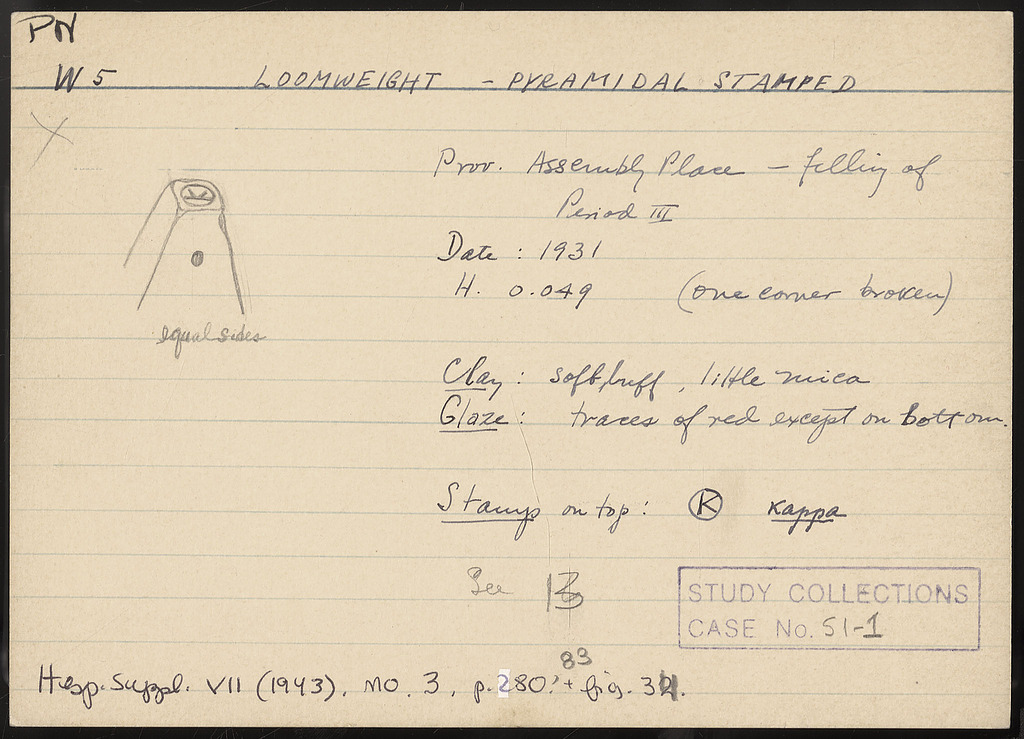 PN
W 5 LOOMWEIGHT - PYRAMIDAL STAMPED
X
Prov. Assembly Place - filling of
Period III
Date : 1931
H. 0.049 (one corner broken)
equal sides
Clay : soft, buff, little mica
Glaze : traces of red except on bottom.
Stamp on top : K kappa
See
STUDY COLLECTIONS
CASE No. SI-1
83
Hesp. Suppl. VII (1943). no. 3, p. 280. + fig.